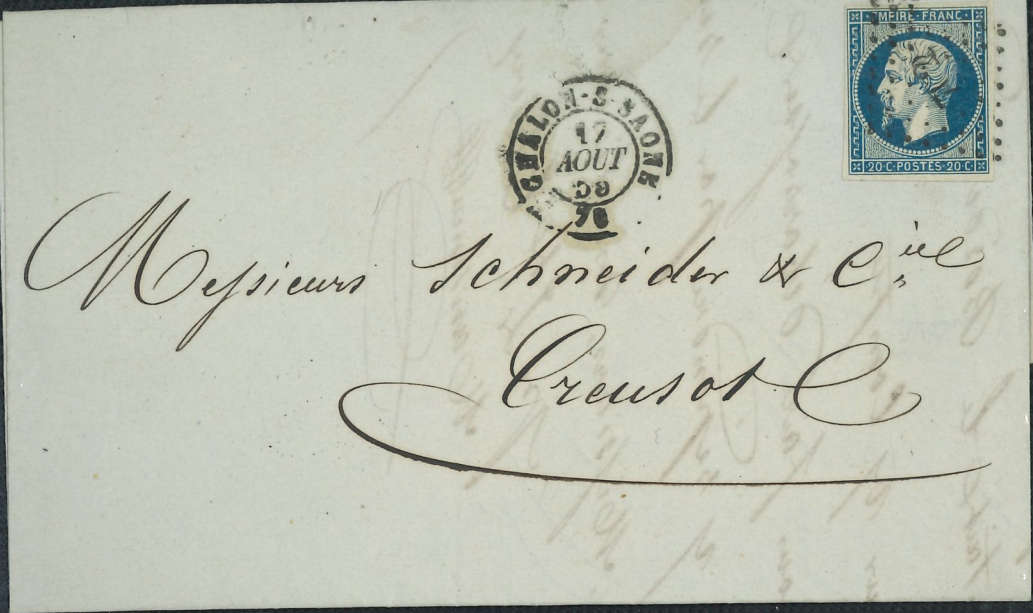 EMPIRE·FRANC·
20·C·POSTES·20·C·
CHALON-S-SAONE
17
AOUT
59
Messieurs Schneider & Cie
Creusot